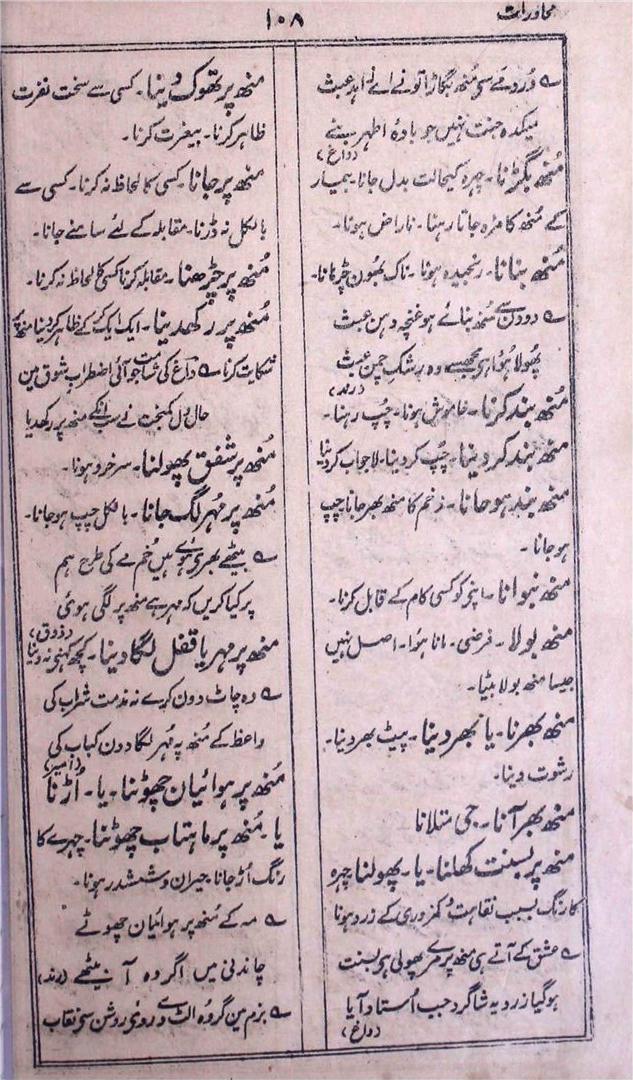 محاورات
۱۰۸
؎ دُردِ مے سی منھ بگاڑا تونے اے زاہد عبث
میکدہ جنت نہیں جو بادۂ اطہر بنے
(داغ)
مُنھ بگڑنا۔ چہرہ کیحالت بدل جانا۔ بیمار
کے مُنھ کا مزہ جاتا رہنا۔ ناراض ہونا۔
منھ بنانا۔ رنجیدہ ہونا۔ ناک بھون چڑہانا۔
؎ دو دن سے مُنھ بنائے ہو غنچہ دہن عبث
پھولا ہُوا ہی مجھسے وہ رشک چمن عبث
(رند)
مُنھ بند کرنا۔ خاموش ہونا۔ چُپ رہنا۔
منھ بند کر دینا۔ چُپ کر دینا۔ لاجواب کر دینا
منھ بند ہو جانا۔ زخم کا منھ بھر جانا چپ
ہو جانا۔
منھ بنوانا۔ اپنی کو کسی کام کے قابل کرنا۔
منھ بولا۔ فرضی۔ مانا ہُوا۔ اصل نہیں
جیسا منھ بولا بیٹا۔
منھ بھرنا۔ یا بھر دینا۔ پیٹ بھر دینا۔
رشوت دینا۔
منھ بھر آنا۔ جی متلانا
منھ پر بسنت کھلنا۔ یا۔ پھولنا چہرہ
کا رنگ بسبب نقاہت و کمزوری کے زرد ہونا
؎ عشق کے آتے ہی منھ پر مرے پھولی ہی بسنت
ہو گیا زرد یہ شاگرد جب اُستاد آیا
(داغ)
منھ پر تھوک دینا۔ کسی سے سخت نفرت
ظاہر کرنا۔ بیغرت کرنا۔
منھ پر جانا۔ کسی کا لحاظ نہ کرنا۔ کسی سے
بالکل نہ ڈرنا۔ مقابلہ کے لئے سامنے جانا۔
مُنھ پر چڑھنا۔ مقابلہ کرنا کسی کا لحاظ نہ کرنا۔
مُنھ پر رکھدینا۔ ایک ایک کر کے ظاہر کر دینا منھ پر
شکایت کرنا ؎ داغ کی شامت جو آئی اضطراب شوق مین
حال دل کمبخت نے سب انکے منھ پر رکھدیا
مُنھ پر شفق پھولنا۔ سرخرو ہونا۔
مُنھ پر مُہر لگ جانا۔ بالکل چپ ہو جانا۔
؎ بیٹھے بھرے ہوے ہیں خُم مے کی طرح ہم
پر کیا کریں کہ مہر ہے منھ پر لگی ہوئی
(ذوق)
منھ پر مہر یا قفل لگا دینا۔ کچھ کہنی نہ دینا
؎ وہ چاٹ دون کرے نہ مذمت شراب کی
واعظ کے مُنھ پہ مُہر لگا دون کباب کی
(امیر)
مُنھ پر ہوائیان چھوٹنا۔ یا۔ اُڑنا
یا۔ مُنھ پر ماہتاب چھوٹنا۔ چہرے کا
رنگ اُڑ جانا۔ حیران و ششدر ہونا۔
؎ مہ کے مُنھ پر ہوائیان چھوٹے
چاندنی میں اگر وہ آ بیٹھے (رند)
؎ بزم مین گر وہ الٹ دے روئ روشن سی نقاب